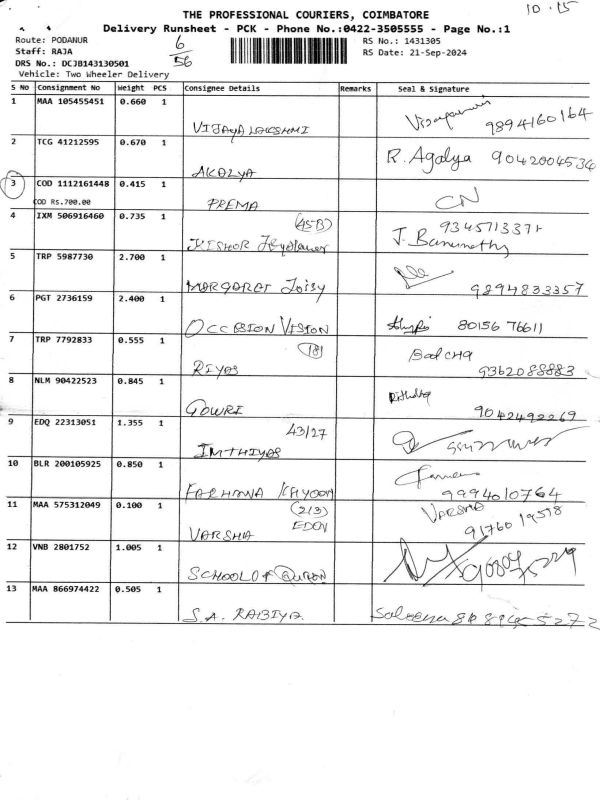 10.15
THE PROFESSIONAL COURIERS, COIMBATORE
Delivery Runsheet - PCK - Phone No.:0422-3505555 - Page No.:1
Route: PODANUR
Staff: RAJA
DRS No.: DCJB143130501
Vehicle: Two Wheeler Delivery
6
56
RS No.: 1431305
RS Date: 21-Sep-2024
S No Consignment No Weight PCS Consignee Details Remarks Seal & Signature
1 MAA 105455451 0.660 1
VIJAYA LAKSHMI 9894160164
2 TCG 41212595 0.670 1
AKALYA R. Agalya 9042004534
3 COD 1112161448 0.415 1
COD Rs.700.00 PREMA CN
4 IXM 506916460 0.735 1
(45B)
KISHOR J. Banumathy
5 TRP 5987730 2.700 1
MARGARET Joisy 9894833357
6 PGT 2736159 2.400 1
OCCASION VISION 80156 76611
7 TRP 7792833 0.555 1
(181)
RIYAS 9362088883
8 NLM 90422523 0.845 1
GOWRI 9042492269
9 EDQ 22313051 1.355 1
43/27
IMTHIYAS
10 BLR 200105925 0.850 1
FARHANA KAYOOM 9994010764
11 MAA 575312049 0.100 1
(213)
EDEN
VARSHA VARSHA
91760 19518
12 VNB 2801752 1.005 1
SCHOOL OF
13 MAA 866974422 0.505 1
S.A. RABIYA Saleena